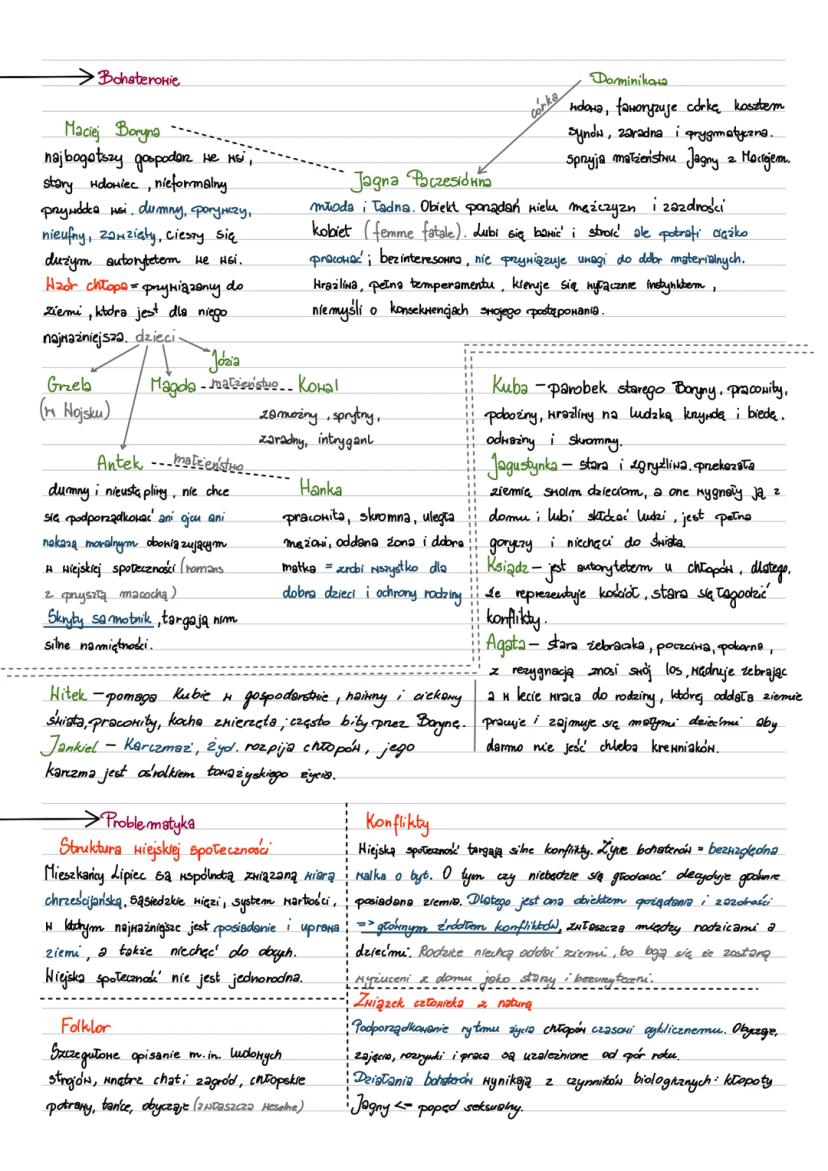 Bohaterowie
Dominikowa
córka
wdowa, faworyzuje córkę kosztem
synów, zaradna i prygmatyczna.
sprzyja małżeństwu Jagny z Maciejem.
Maciej Boryna
najbogatszy gospodarz we wsi,
stary wdowiec, nieformalny
przywódca wsi. dumny, porywczy,
nieufny, zawzięty, cieszy się
dużym autorytetem we wsi.
Wzór chłopa = przywiązany do
ziemi, która jest dla niego
najważniejsza. dzieci
Jagna Paczesiówna
młoda i ładna. Obiekt porządań wielu mężczyzn i zazdrości
kobiet (femme fatale). Lubi się bawić i stroić ale potrafi ciężko
pracować; bezinteresowna, nie przywiązuje uwagi do dóbr materialnych.
Wrażliwa, pełna temperamentu, kieruje się wyłącznie instynktem,
niemyśli o konsekwencjach swojego postępowania.
Józia
Grzela
(w Wojsku)
Magda małżeństwo Kowal
zamożny, sprytny,
zaradny, intrygant
Antek małżeństwo
Hanka
dumny i nieustępliwy, nie chce
się podporządkować ani ojcu ani
nakazą moralnym obowiązującym
w wiejskiej społeczności (romans
z przyszłą macochą)
Skryty samotnik, targają nim
silne namiętności.
pracowita, skromna, uległa
mężowi, oddana żona i dobra
matka = zrobi wszystko dla
dobra dzieci i ochrony rodziny
Kuba – parobek starego Boryny, pracowity,
pobożny, wrażliwy na ludzką krzywdę i biedę.
odważny i skromny.
Jagustynka – stara i zgryźliwa. przekazała
ziemię swoim dzieciom, a one wygnały ją z
domu; lubi skłócać ludzi, jest pełna
goryczy i niechęci do świata.
Ksiądz – jest autorytetem u chłopów, dlatego,
że reprezentuje kościół, stara się łagodzić
konflikty.
Agata – stara żebraczka, poczciwa, pokorna,
z rezygnacją znosi swój los, wędruje żebrając
a w lecie wraca do rodziny, której oddała ziemie
pracuje i zajmuje się małymi dziećmi aby
darmo nie jeść chleba krewniaków.
Witek – pomaga Kubie w gospodarstwie, naiwny i ciekawy
świata, pracowity, kocha zwierzęta; często bity przez Borynę.
Jankiel – Karczmaż, Żyd. rozpija chłopów, jego
karczma jest ośrodkiem towarzyskiego życia.
Problematyka
Struktura wiejskiej społeczności
Mieszkańcy Lipiec są wspólnotą związaną wiarą
chrześcijańską, sąsiedzkie więzi, system wartości,
w którym najważniejsze jest posiadanie i uprawa
ziemi, a także niechęć do obcych.
Wiejska społeczność nie jest jednorodna.
Folklor
Szczegółowe opisanie m.in. ludowych
strojów, wnętrz chat i zagród, chłopskie
potrawy, tańce, obyczaje (zwłaszcza weselne)
Konflikty
Wiejską społeczność targają silne konflikty. Życie bohaterów = bezwzględna
walka o byt. O tym czy niebędzie się głodować decyduje głównie
posiadana ziemia. Dlatego jest ona obiektem pożądania i zazdrości
=> głównym źródłem konfliktów, zwłaszcza między rodzicami a
dziećmi. Rodzice niechcą oddać ziemi, bo boją się że zostaną
wyżuceni z domu jako starzy i bezużyteczni.
Związek człowieka z naturą
Podporządkowanie rytmu życia chłopów czasowi cyklicznemu. Obyczaje,
zajęcia, rozrywki i praca są uzależnione od pór roku.
Działania bohaterów wynikają z czynników biologicznych: kłopoty
Jagny <= popęd seksualny.